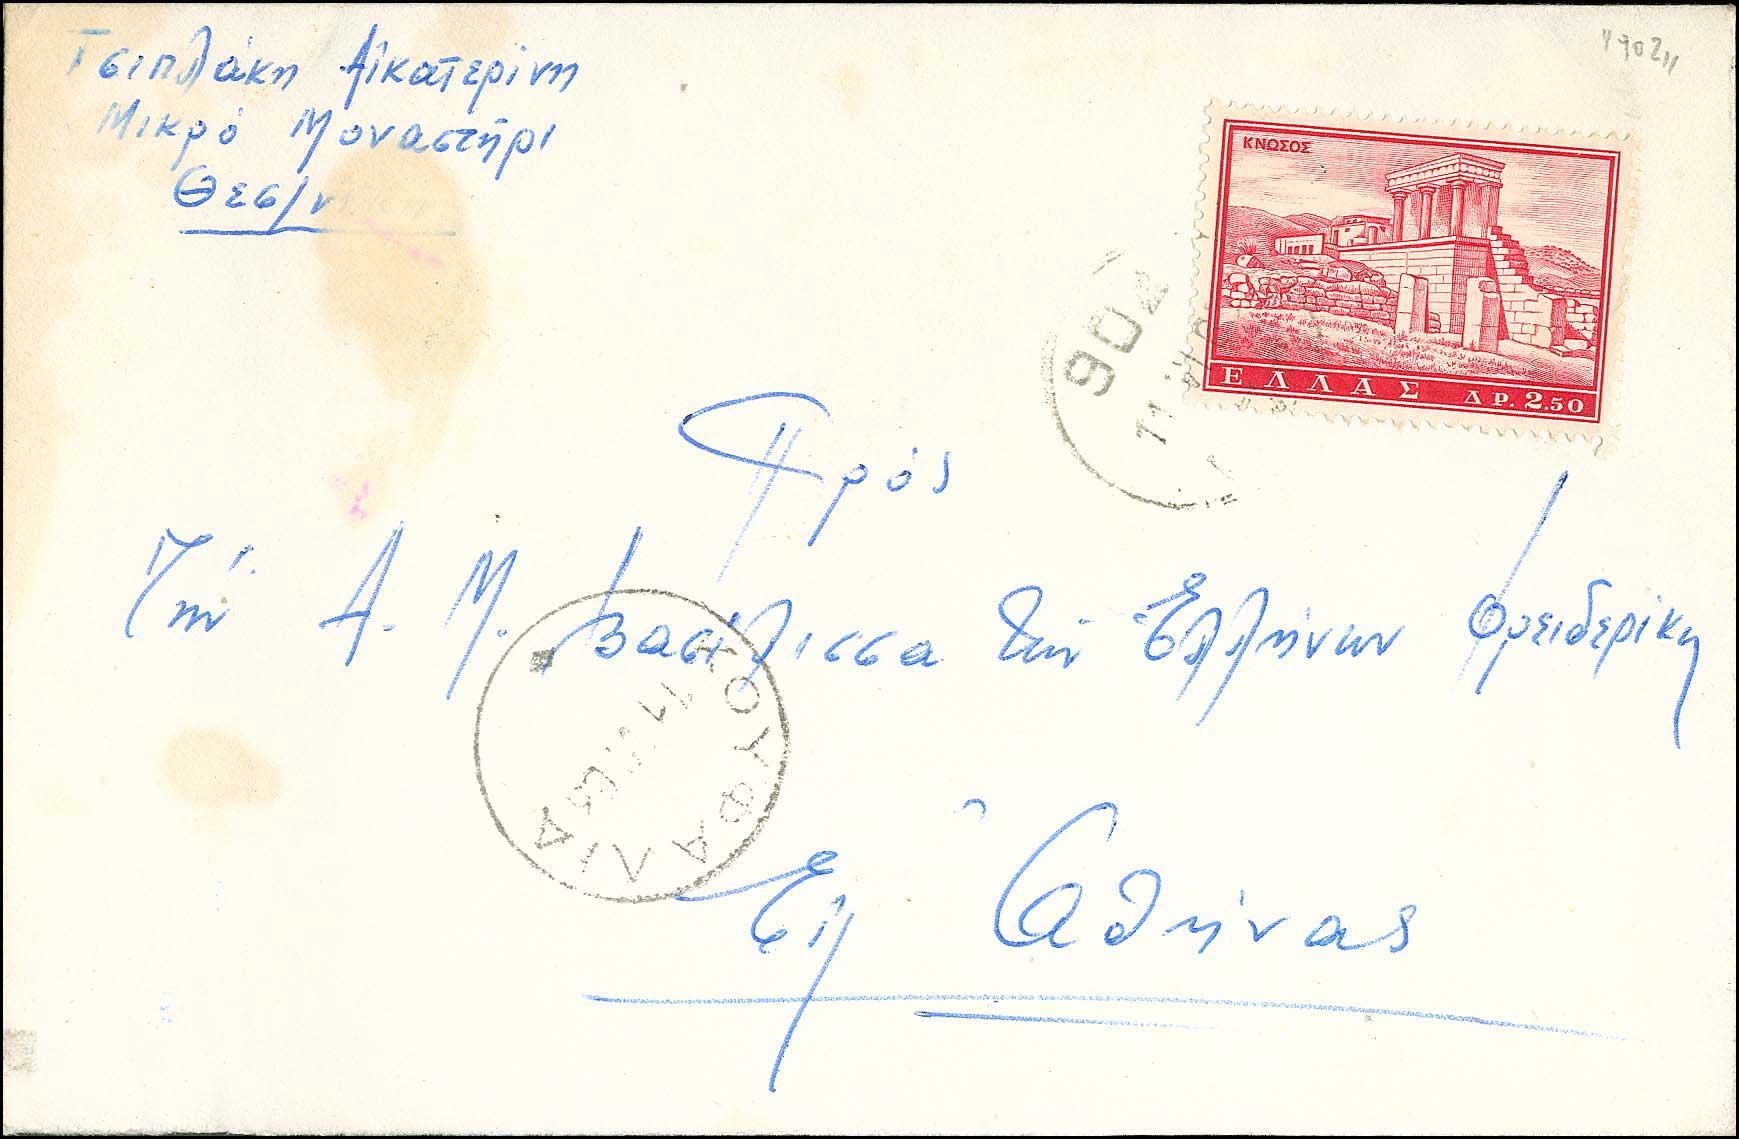 Τσιπλάκη Αἰκατερίνη
Μικρό Μοναστήρι
Θεσ/ν
ΚΝΩΣΟΣ
ΕΛΛΑΣ ΔΡ. 2.50
902
11
Πρός
Τήν Α. Μ. Βασίλισσα τῶν Ἑλλήνων Φρειδερίκη
ΚΟΥΦΑΛΙΑ
11
Εἰς Ἀθήνας